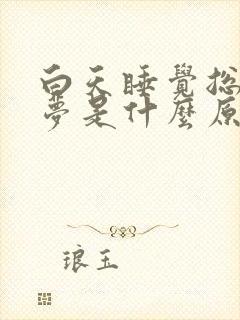 白天睡覺总
夢是什麼原
琅玉